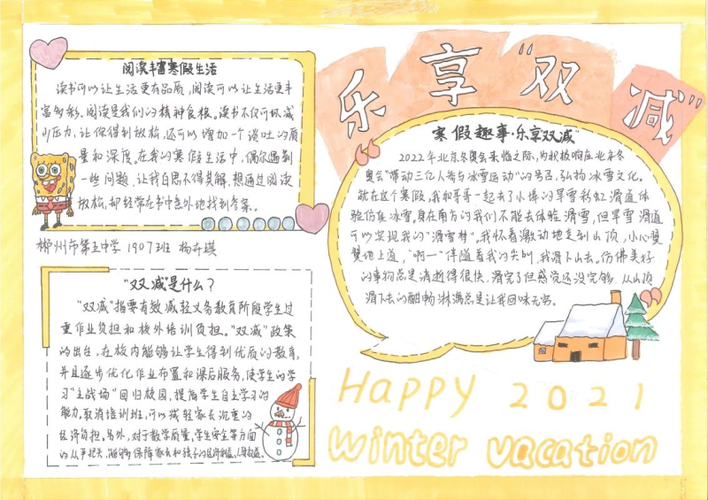 乐享"双减"
阅读丰富寒假生活
读书可以让生活更有品质,阅读可以让生活更丰
富多彩。阅读是我们的精神食粮。读书不仅可以减
小压力,让你得到放松,还可以增加一个谈吐的质
量和深度。在我的寒假生活中,偶尔遇到
一些问题,让我百思不得其解,想通过阅读
放松,却经常在书中意外地找到答案。
郴州市第五中学 1907班 杨卉琪
"双减"是什么?
"双减"指要有效减轻义务教育阶段学生过
重作业负担和校外培训负担。"双减"政策
的出台,在校内能够让学生得到优质的教育,
并且逐步优化作业布置和课后服务,使学生的学
习"主战场"回归校园,提高学生自主学习的
能力。取消培训班,可以减轻家长沉重的
经济负担。另外,对于教学质量,学生安全等方面
寒假趣事·乐享双减
2022年北京冬奥会来临之际,为积极响应北京冬
奥会"带动三亿人参与冰雪运动"的号召,弘扬冰雪文化。
就在这个寒假,我和哥哥一起去了小埠的旱雪彩虹滑道体
验仿真冰雪,身在南方的我们不能去体验滑雪,但旱雪滑道
可以实现我的"滑雪梦"。我怀着激动地走到山顶,小心翼
翼地上道,"啊一"伴随着我的尖叫,我滑下山去。仿佛美好
的事物总是消逝得很快,滑完了但感觉还没完够,从山顶
滑下去的酣畅淋漓总是让我回味无穷。
HAPPY 2021
winter vacation